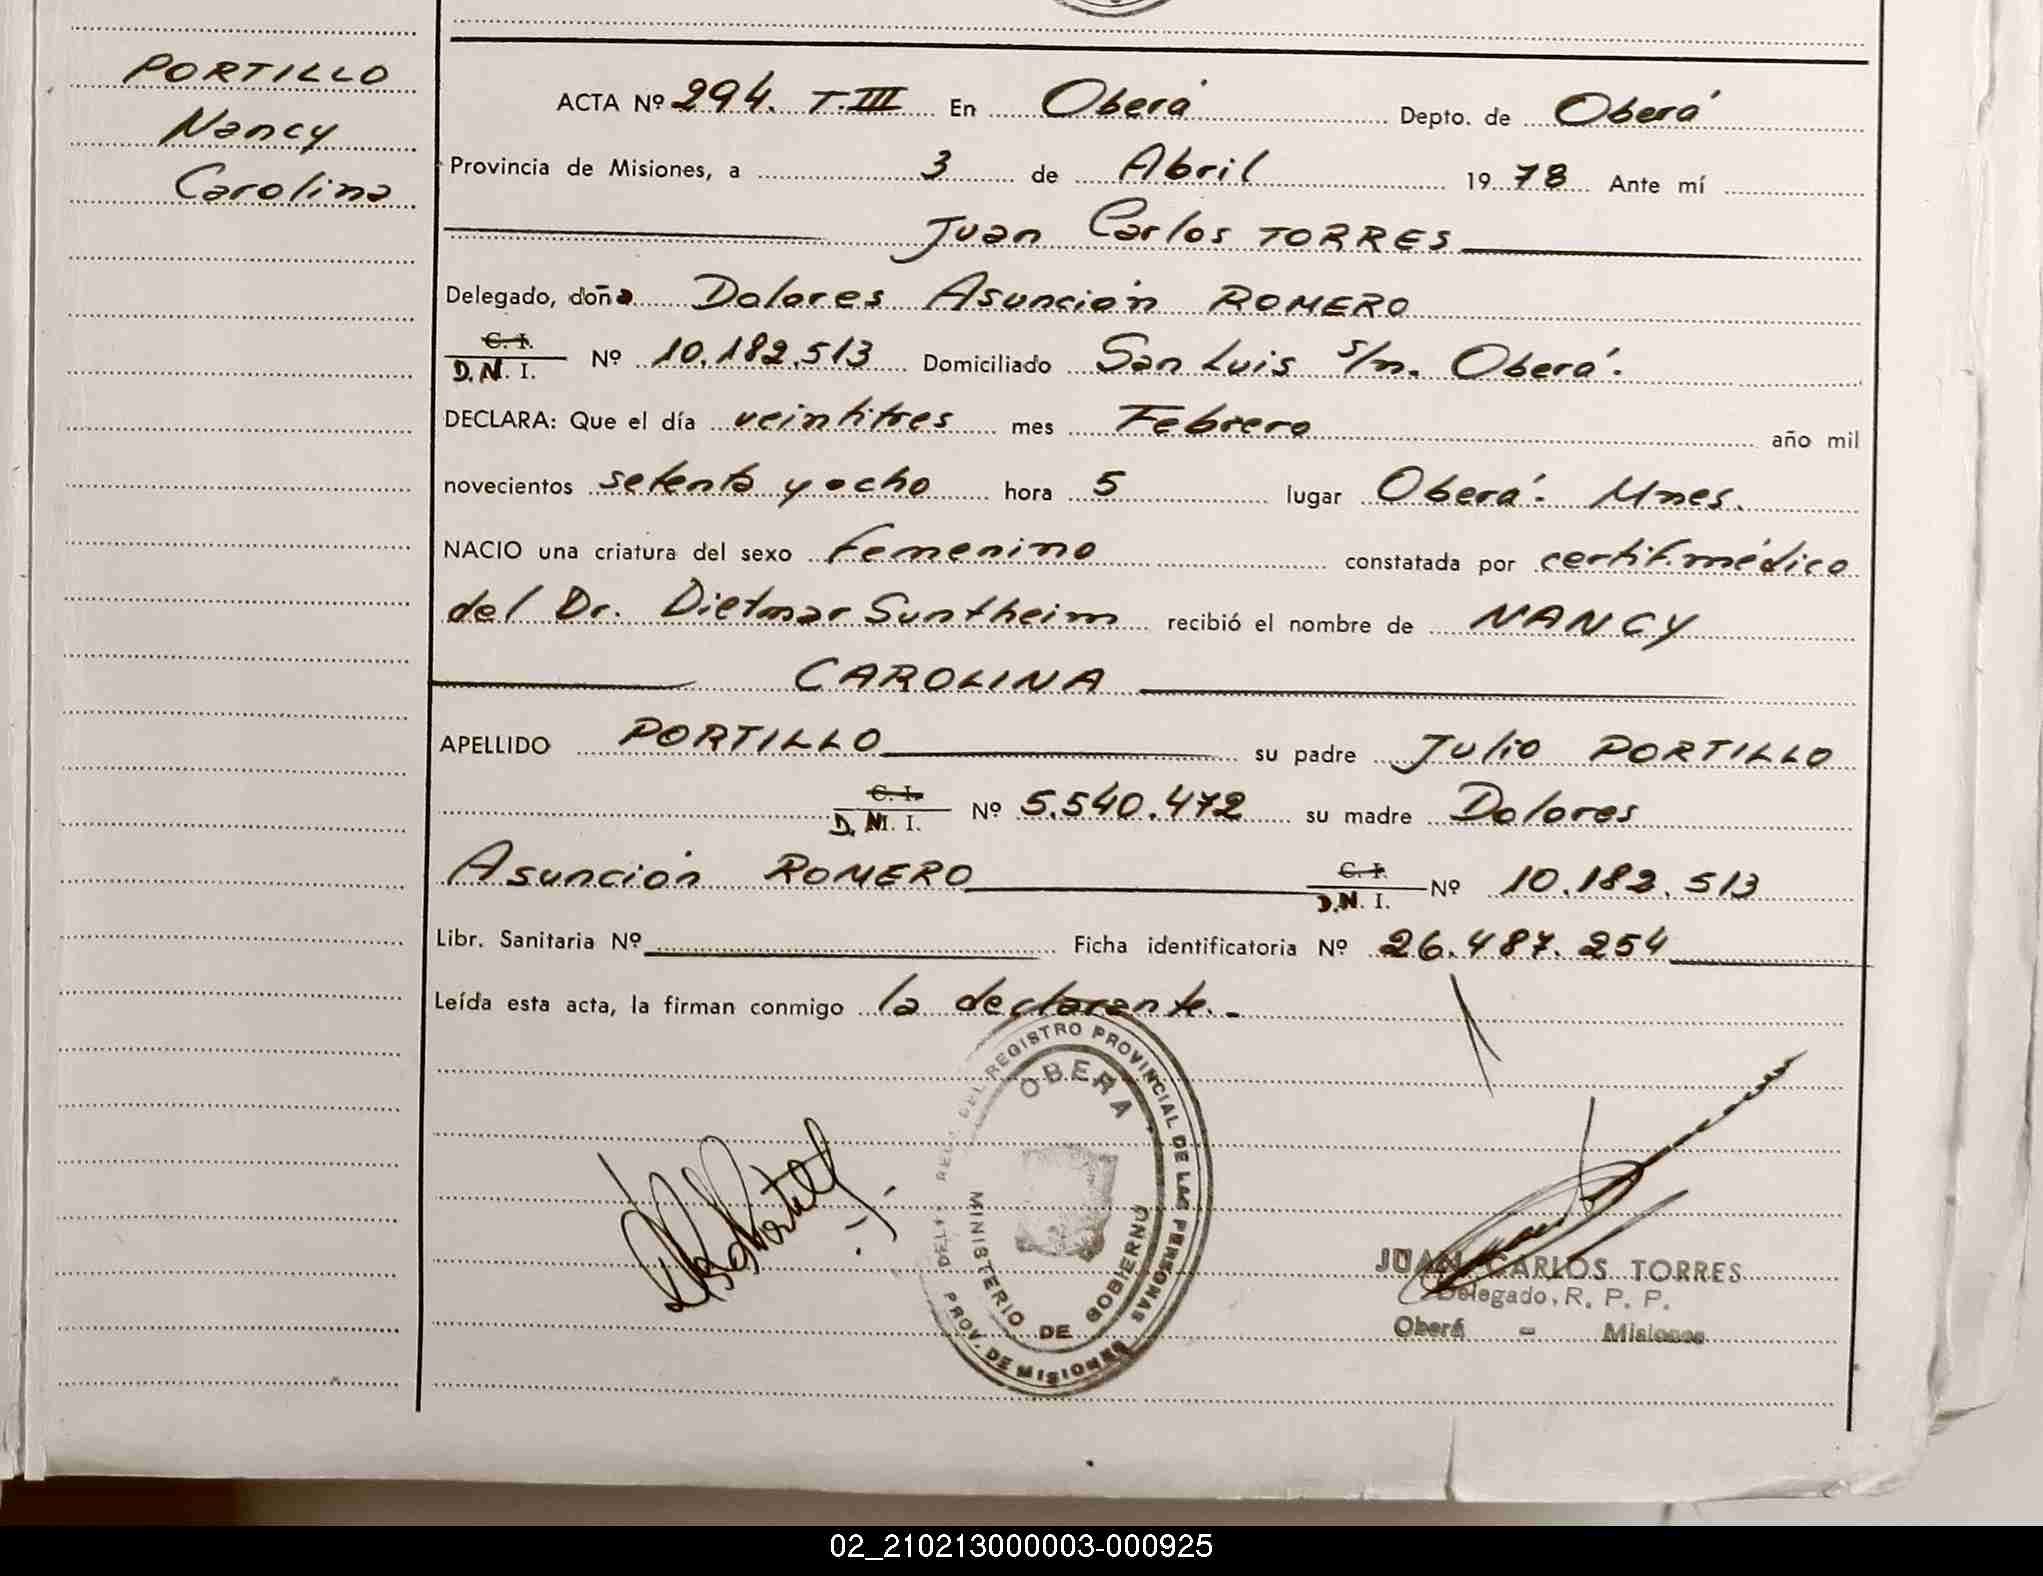 PORTILLO
Nancy
Carolina
ACTA Nº 294. T.III En Oberá Depto. de Oberá
Provincia de Misiones, a 3 de Abril 1978 Ante mí
Juan Carlos TORRES
Delegado, doña Dolores Asunción ROMERO
C. I.
D. N. I. Nº 10.182.513 Domiciliado San Luis s/n. Oberá.
DECLARA: Que el día veintitres mes Febrero año mil
novecientos setenta y ocho hora 5 lugar Oberá. Mnes.
NACIO una criatura del sexo femenino constatada por certif.médico
del Dr. Dietmar Suntheim recibió el nombre de NANCY
CAROLINA
APELLIDO PORTILLO su padre Julio PORTILLO
C. I.
D. N. I. Nº 5.540.472 su madre Dolores
Asunción ROMERO C. I.
D. N. I. Nº 10.182.513
Libr. Sanitaria Nº Ficha identificatoria Nº 26.487.254
Leída esta acta, la firman conmigo la declarante.-
DEL REGISTRO PROVINCIAL DE LAS PERSONAS
OBERA
MINISTERIO DE GOBIERNO
PROV. DE MISIONES
JUAN CARLOS TORRES
Delegado, R. P. P.
Oberá - Misiones
02_210213000003-000925